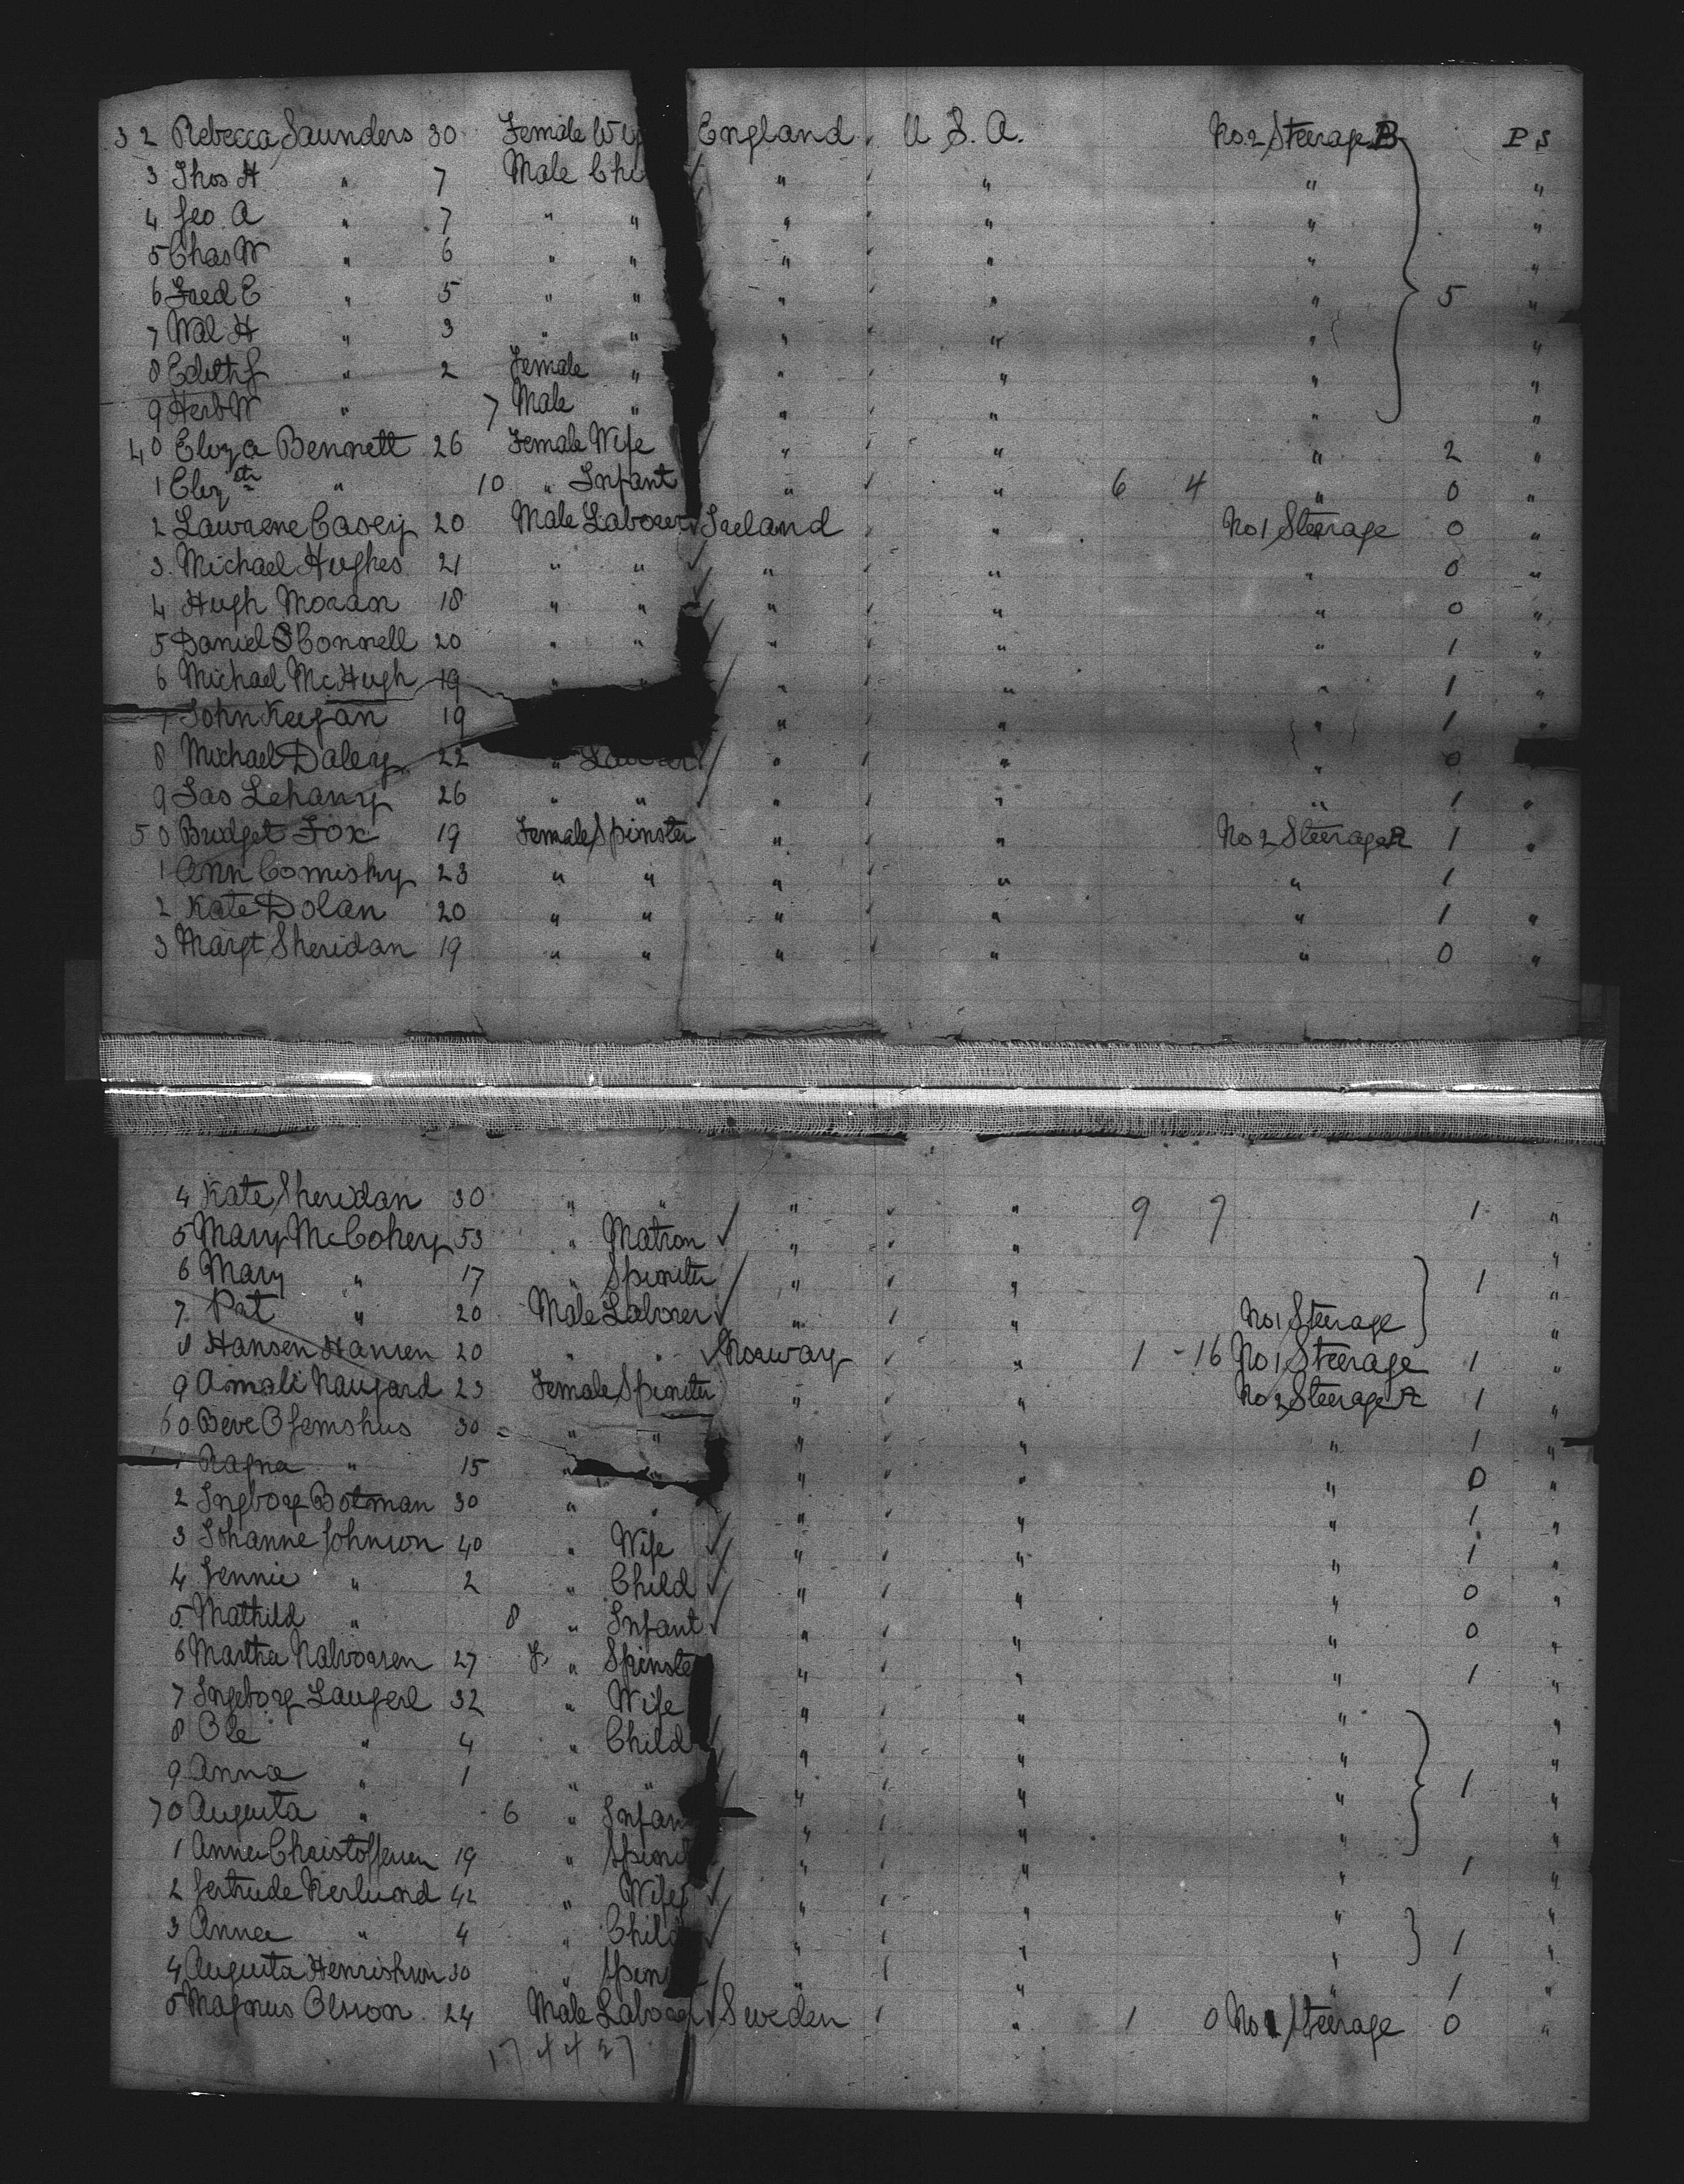 3 2 Rebecca Saunders 30 Female Wif England " U S. A. No. 2 Steerage B P S
3 Thos H " 7 Male Chi " " " "
4 Geo. A " 7 " " " " " "
5 Chas W " 6 " " " " " "
6 Fred E " 5 " " " " " 5 "
7 Wal H " 3 " " " " " "
8 Edith J " 2 Female " " " " "
9 Herb W " 7 Male " " " " "
40 Eliza Bennett 26 Female Wife " " " 2 "
1 Elizth " 10 " Infant " " 6 4 " 0 "
2 Lawrene Casey 20 Male Laborer Ireland " No 1 Steerage 0 "
3. Michael Hughes 21 " " " " " 0 "
4 Hugh Moran 18 " " " " " 0 "
5 Daniel O'Connell 20 " " " " " 1 "
6 Michael McHugh 19 " " " " " 1 "
7 John Keegan 19 " " " 1 "
8 Michael Daley 22 " Laborer " " " 0
9 Jas Lehany 26 " " " " " 1 "
50 Bridget Fox 19 Female Spinster " " No 2 Steerage A 1 "
1 Ann Comisky 23 " " " " " 1
2 Kate Dolan 20 " " " " " 1 "
3 Margt Sheridan 19 " " " " " 0 "
4 Kate Sheridan 30 " " " " 9 7 1 "
5 Mary McCohey 53 " Matron " " "
6 Mary " 17 " Spinster " " 1 "
7. Pat " 20 Male Laborer " " No 1 Steerage "
8 Hansen Hansen 20 " " Norway " 1 - 16 No 1 Steerage 1 "
9 Amali Naugard 23 Female Spinster " " No 2 Steerage A 1 "
60 Beve Ofemshus 30 " " " " " 1 "
1 Ragna " 15 " " " " " 0 "
2 Ingborg Botman 30 " " " " " 1 "
3 Johanne Johnson 40 " Wife " " " 1 "
4 Jennie " 2 " Child " " " 0 "
5. Mathild " 8 " Infant " " " 0 "
6 Martha Nalvorsen 27 " Spinste " " " 1 "
7 Ingeborg Laugerl 32 " Wife " " " "
8 Ole " 4 " Child " " " "
9 Anna " 1 " " " " " 1 "
70 Augusta " 6 " Infan " " " "
1 Anna Christoffersen 19 " Spins " " " 1 "
2 Gertrude Nerlund 42 " Wife " " " "
3 Anna " 4 " Child " " " 1 "
4 Augusta Henrikson 30 " Spins " " " 1 "
5 Magnus Olsson 24 Male Laborer Sweden " 1 0 No 1 Steerage 0 "
17 4 4 27